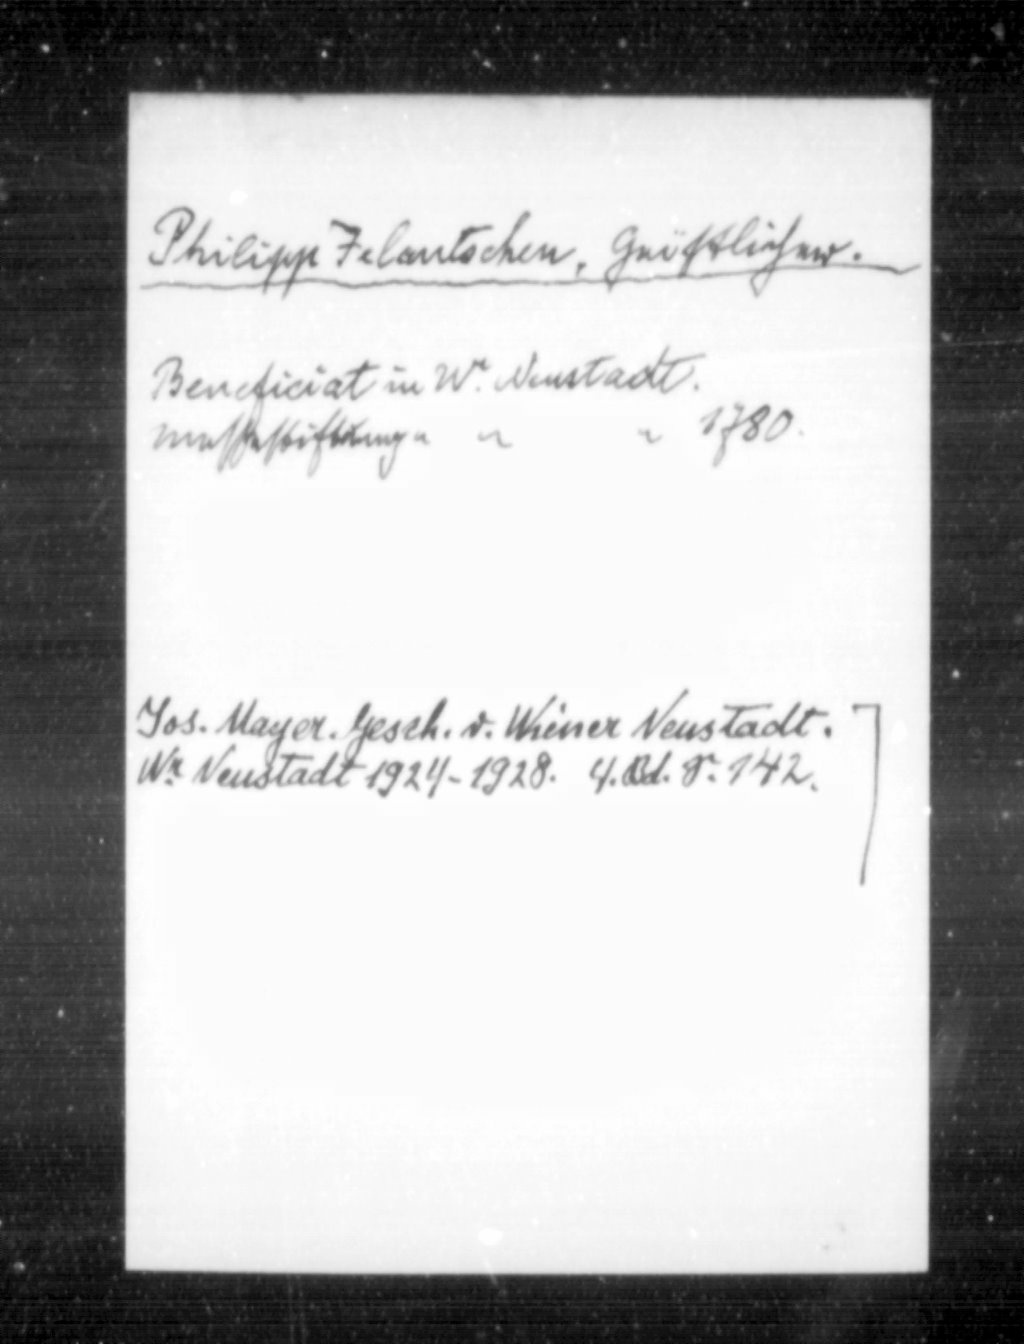 Philipp Jelantschen, Geistlicher.
Beneficiat in Wr. Neustadt.
Messestiftung " " " 1780.
Jos. Mayer. Gesch. v. Wiener Neustadt.
Wr. Neustadt 1924-1928. 4. Bd. S. 142.